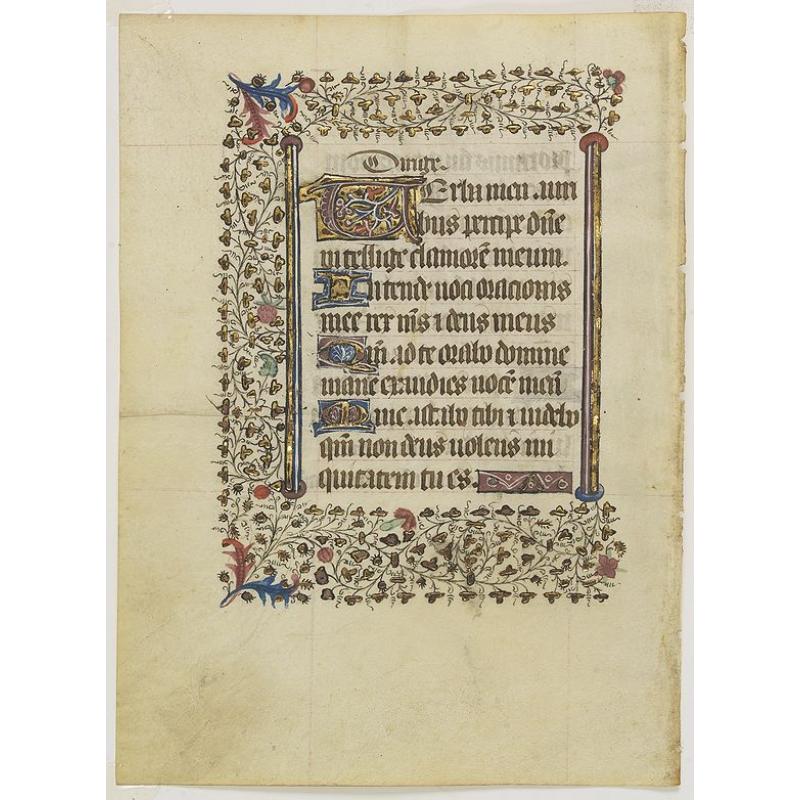 Dirige.
Verba mea auri
bus percipe dñe
intellige clamorē meum.
Intende uoci oracionis
mee rex m̃s ⁊ deus meus
Qm̃ ad te orabo domine
mane exaudies uocē meā
Mane astabo tibi ⁊ uidebo
qm̃ non deus uolens ini
quitatem tu es.